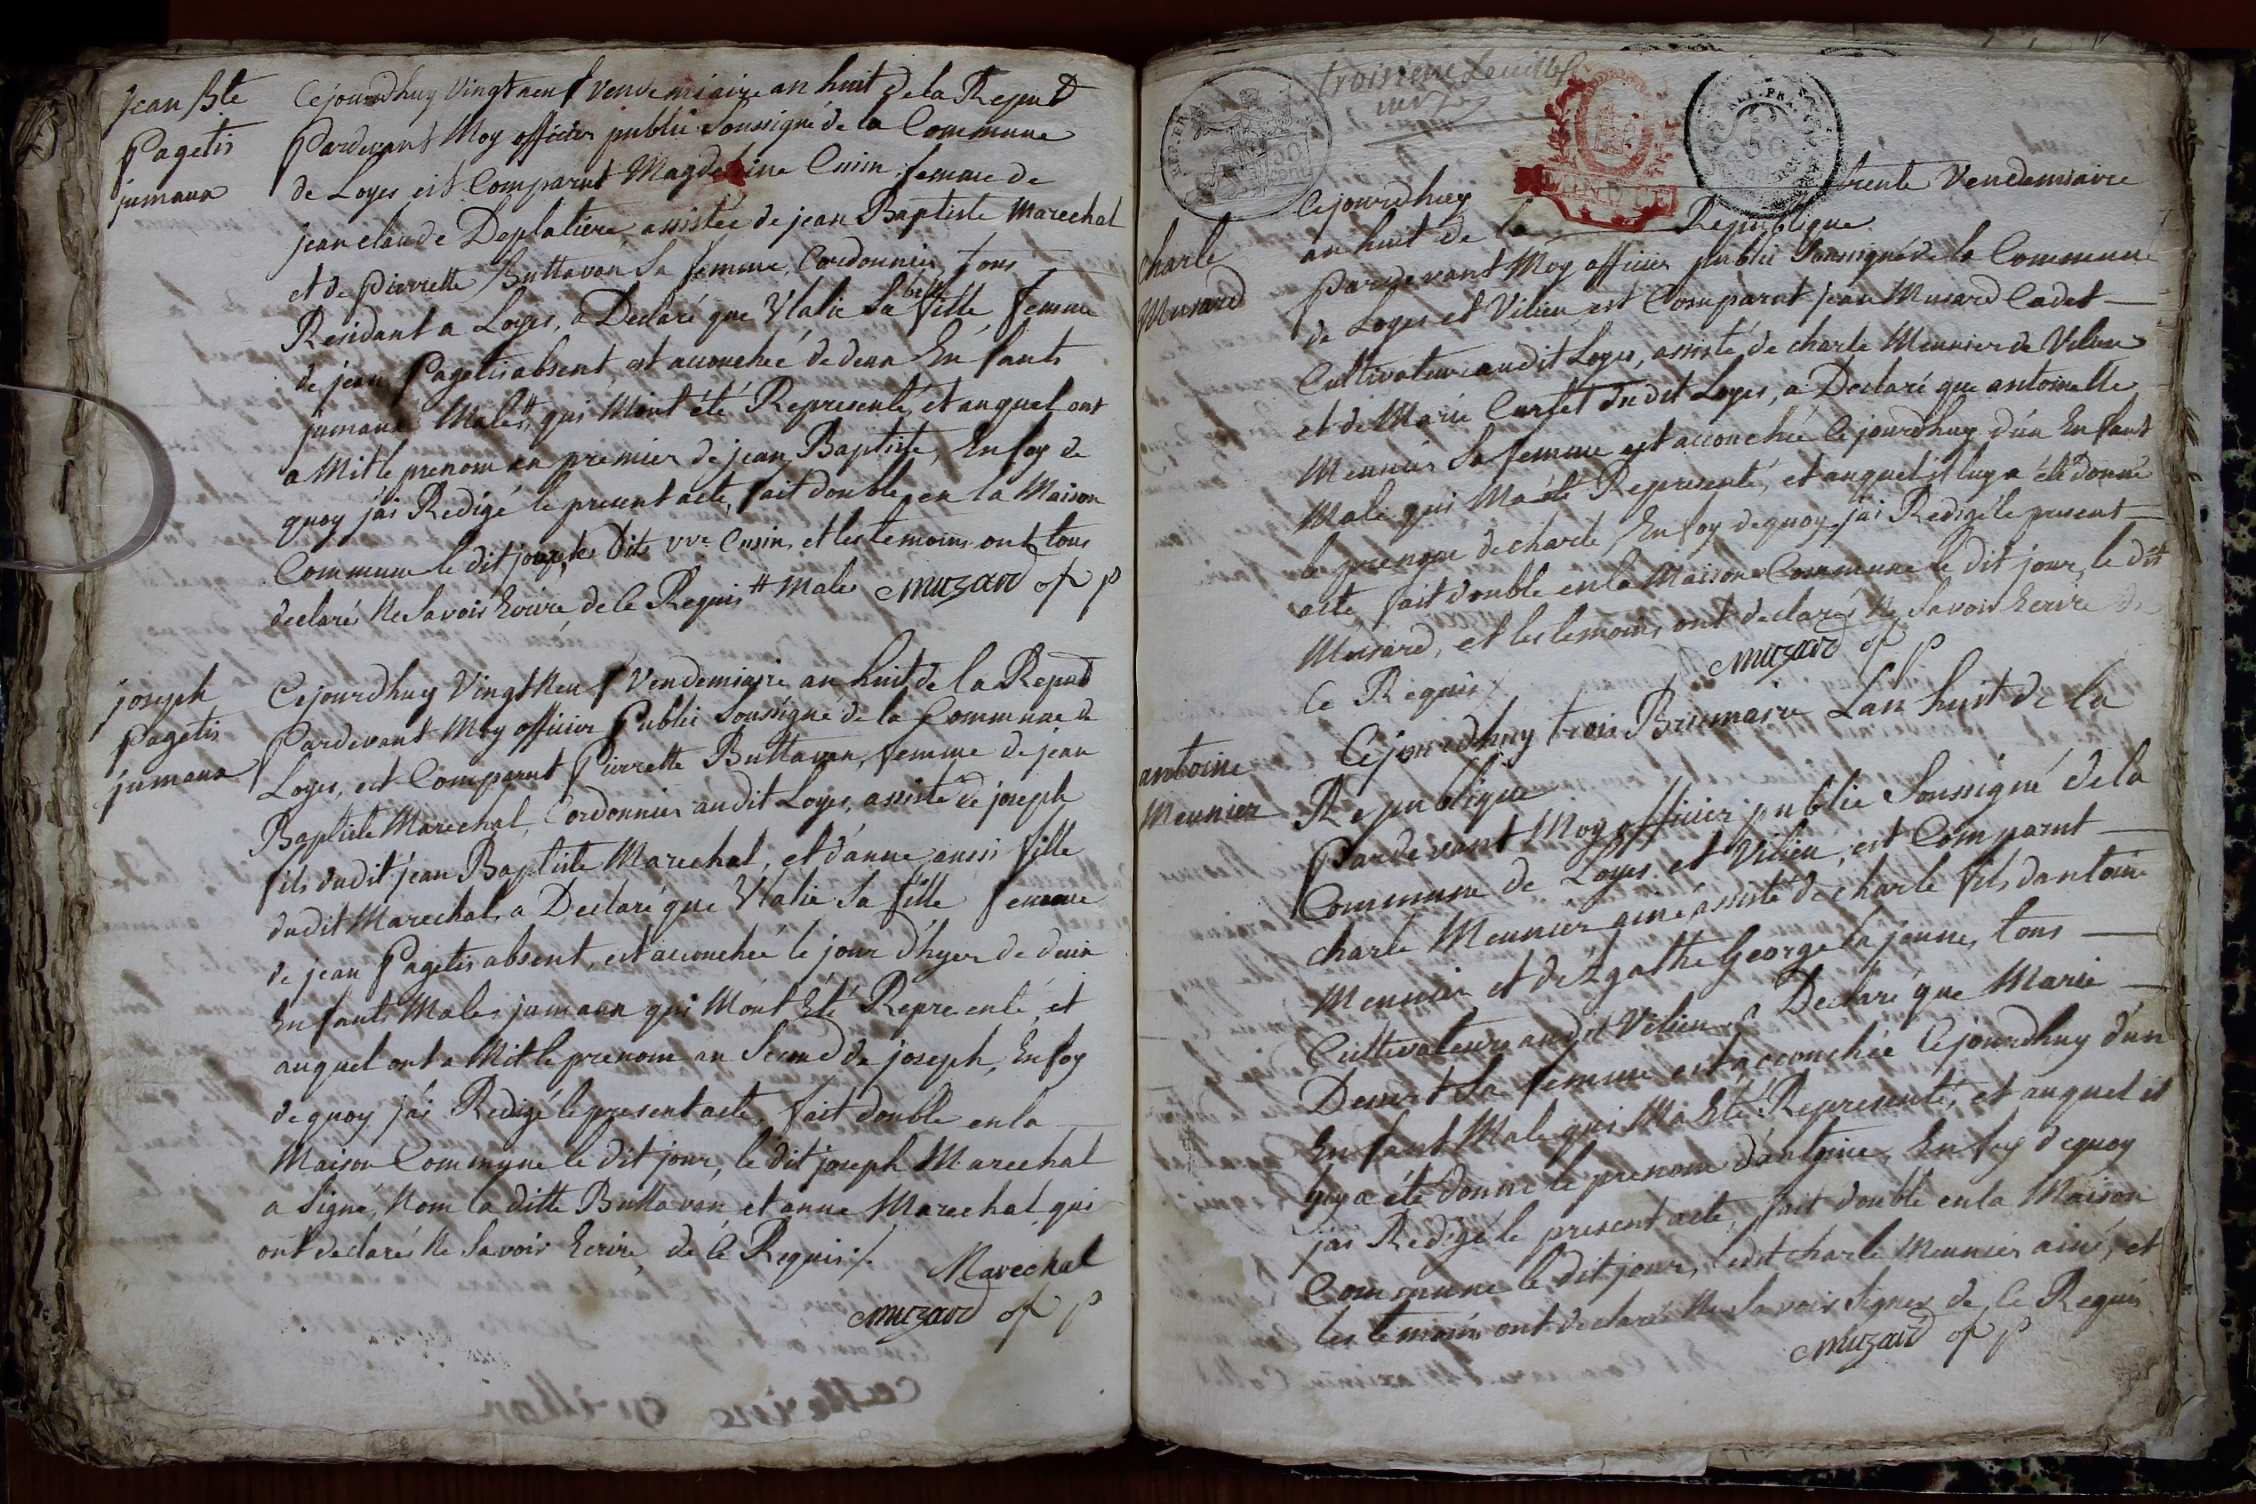 jean Bte
Pagetis
jumaux
Cejourdhuy Vingtneuf Vendemiaire an huit de la Repud
Pardevant Moy officier public Soussigné de la Commune
de Loyes est Comparut Magdeleine Cusin femme de
jean claude Deplatiere assistée de jean Baptiste Marechal
et de pierrette Buttavan Sa femme, Cordonnier, tous
Residant a Loyes, a Declaré que Ulalie Sa belle fille, femme
de jean Pagetis absent est accouchée de deux Enfants
jumaux Males # qui M'ont été Representé, et auquel ont
a Mit le prenom au premier de jean Baptiste, En foy de
quoy j'ai Redigé le present acte, fait double en la Maison
Commune le dit jour, les Dits vve Cusin, et les temoins ont tous
declarés Ne Savoir Ecrire de Ce Requis # Males Muzard of p
joseph
Pagetis
jumaux
Cejourdhuy Vingt Neuf Vendemiaire an huit de la Repud
Pardevant Moy officier Public Soussigné de la Commune de
Loyes, est Comparut Pierrette Buttavan, femme de jean
Baptiste Marechal, Cordonnier audit Loyes, assisté de joseph
fils dudit jean Baptiste Marechal, et d'anne aussi fille
dudit Marechal, a Declaré que Ulalie Sa fille femme
de jean Pagetis absent, est accouchée le jour d'hyer de deux
Enfants Males jumaux qui M'ont Eté Representé, et
auquel ont a Mit le prenom au Second de joseph, En foy
de quoy j'ai Redigé le present acte, fait double en la
Maison Commune le dit jour, le dit joseph Marechal
a Signé, Nom la ditte Buttavan et anne Marechal qui
ont declarés Ne Savoir Ecrire, de Ce Requis ./.
Marechal
Muzard of p
troisieme feuillet
REP. FRA.
REP. FRA.
50
Cejourdhuy trente Vendemiaire
an huit de la Republique
charle
Musard
Pardevant Moy officier public Soussigné de la Commune
de Loyes et Vilieu est Comparut jean Musard Cadet
Cultivateur audit Loyes, assisté de charle Meunier de Vilieu
et de Marie Curfet du dit Loyes, a Declaré que antoinette
Meunier Sa femme est accouchée Cejourdhuy d'un Enfant
Male qui M'a été Representé, et auquel il luy a été donné
le prenom de charle En foy de quoy j'ai Redigé le present
acte, fait double en la Maison Commune le dit jour, le dit
Musard, et les temoins ont declarés Ne Savoir Ecrire de
Ce Requis /. Muzard of p
antoine
Meunier
Cejourdhuy trois Brumaire Lan huit de la
Republique
Pardevant Moy officier public Soussigné de la
Commune de Loyes et Vilieu, est Comparut
charle Meunier ainé assisté de charle fils dantoine
Meunier et de Agathe George la jeune, tous
Cultivateurs audit Vilieu, a Declaré que Marie
Desvert Sa femme est accouchée Cejourdhuy d'un
Enfant Male qui M'a Eté Representé, et auquel il
luy a été donné le prenom d'antoine, En foy de quoy
j'ai Redigé le present acte, fait double en la Maison
Commune le dit jour, ledit charle Meunier ainé, et
les temoins ont declarés Ne Savoir Signer de Ce Requis
Muzard of p